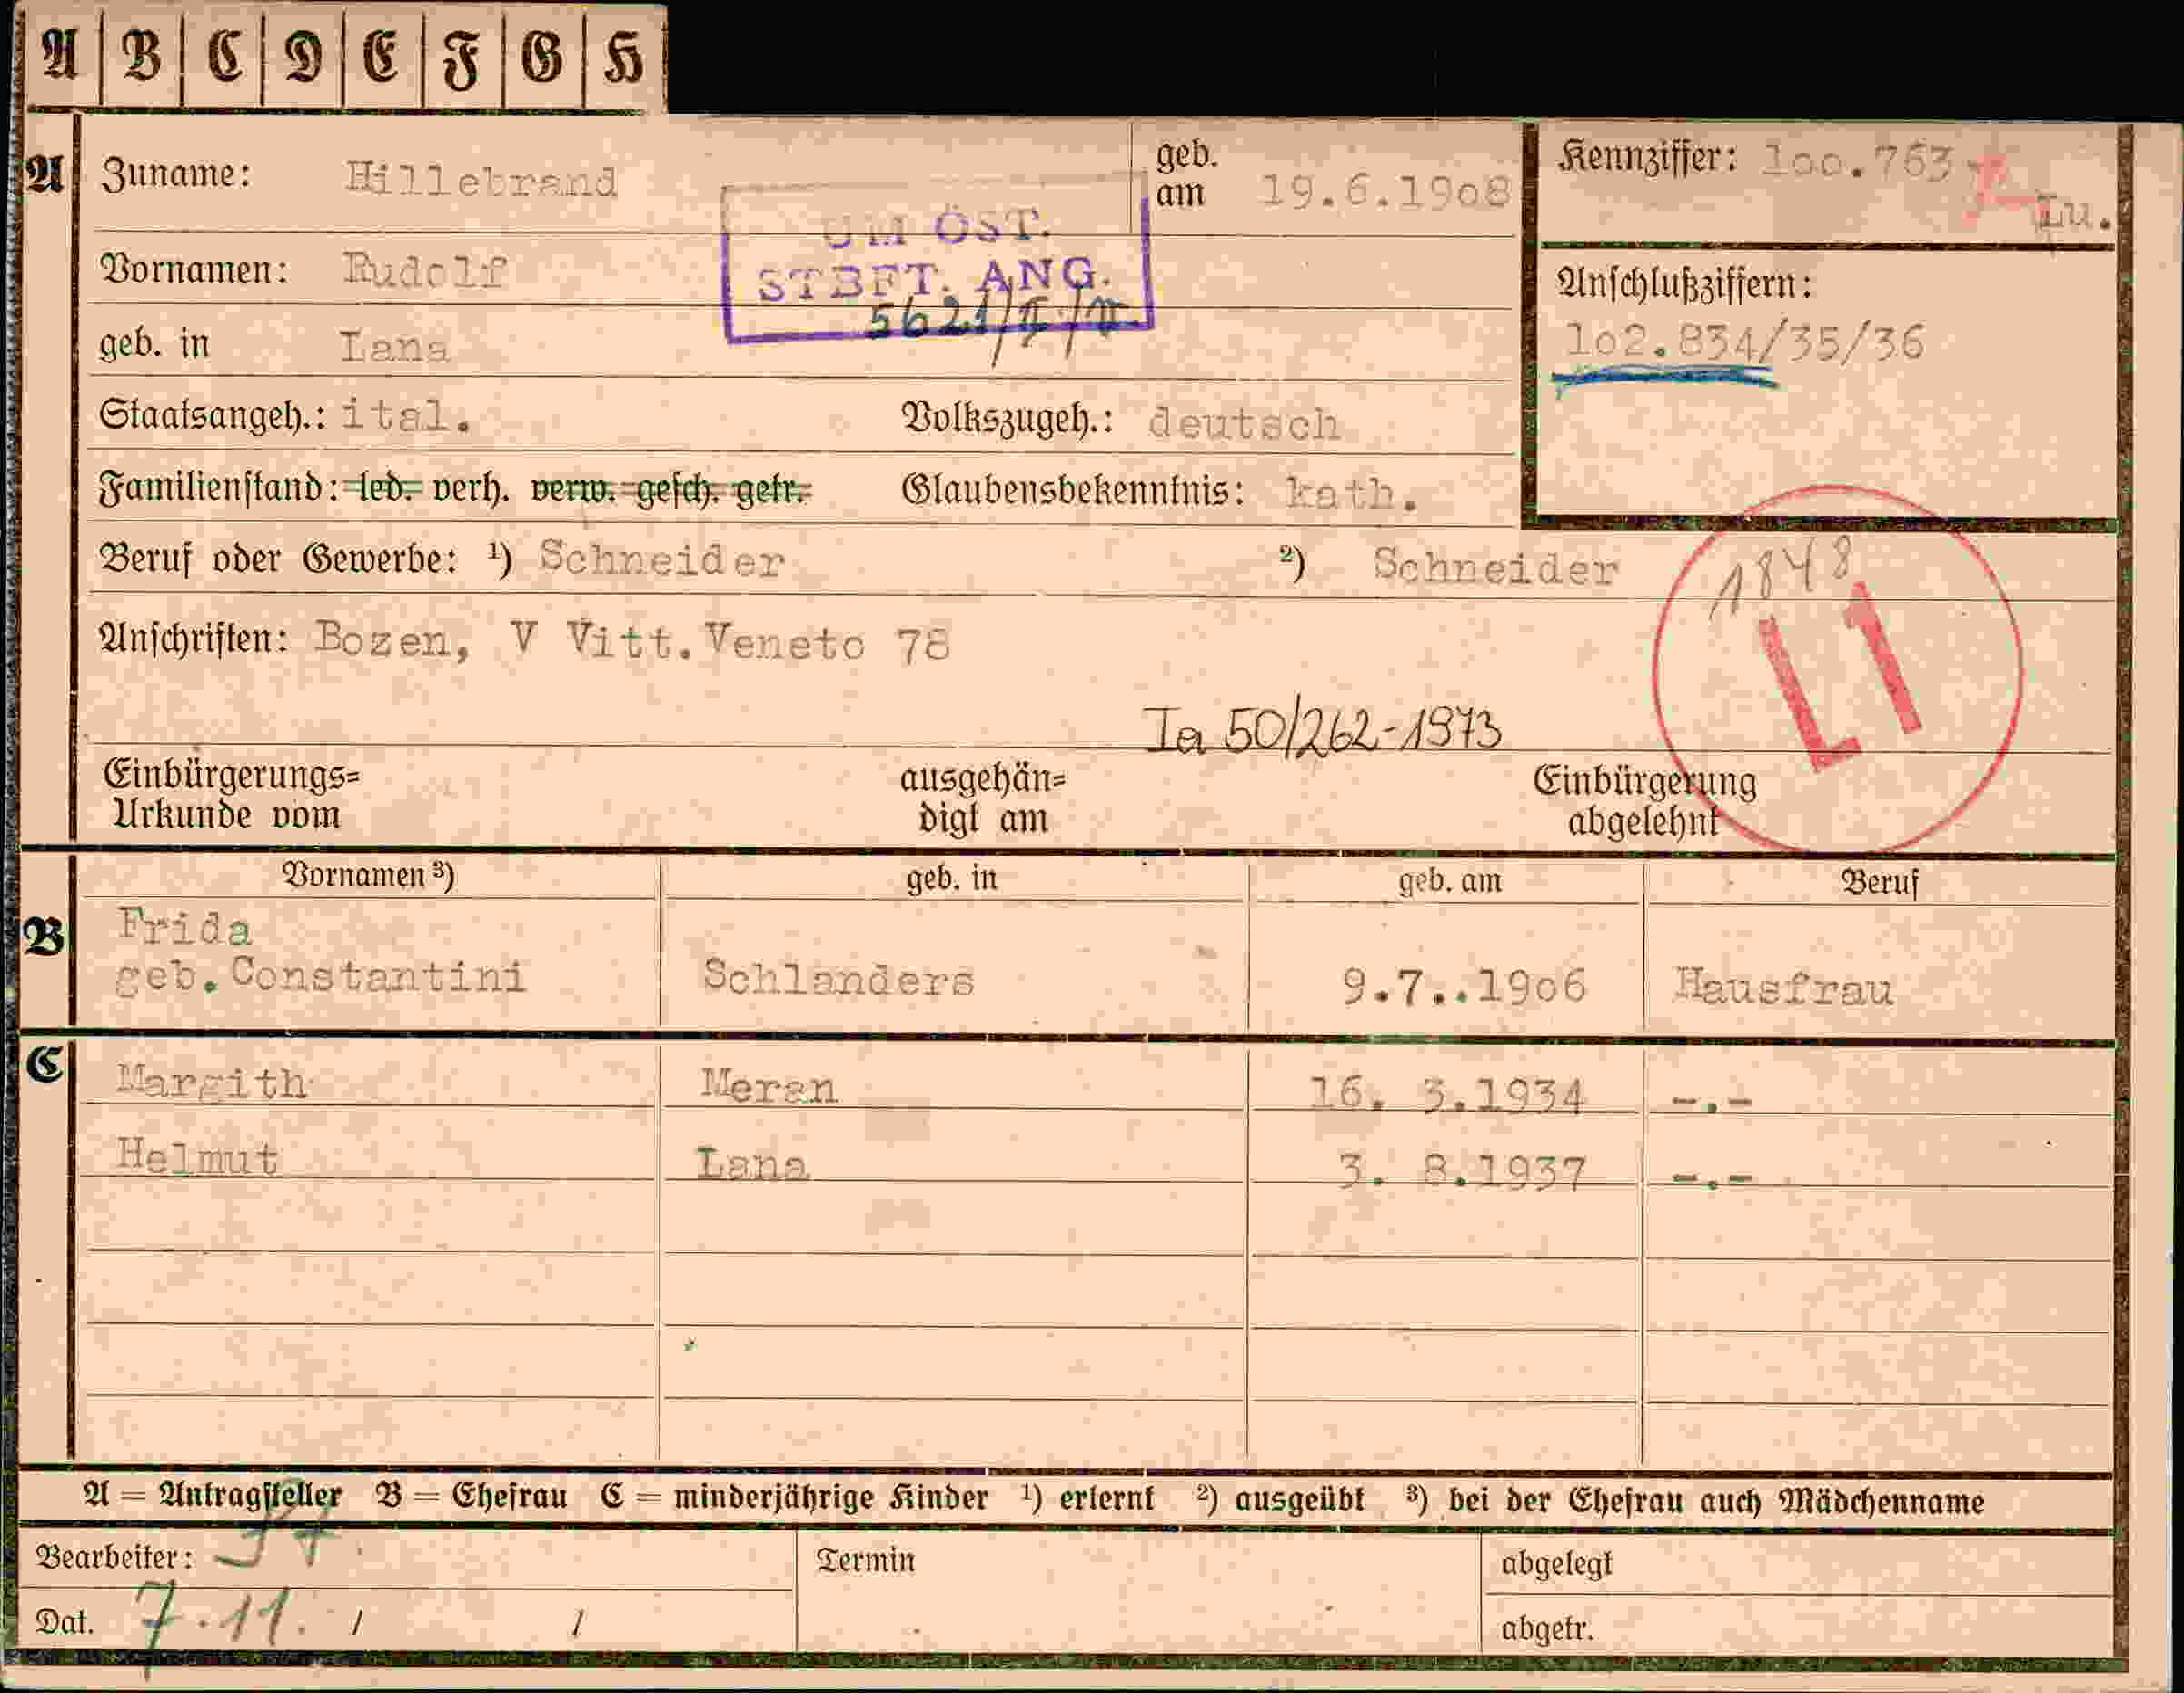 A B C D E F G H
A Zuname: Hillebrand geb. am 19.6.19o8
Kennziffer: 1oo.763 Lu.
UM ÖST.
STBFT. ANG.
5621/II/
Vornamen: Rudolf
geb. in Lana
Anschlußziffern:
1o2.834/35/36
Staatsangeh.: ital. Volkszugeh.: deutsch
Familienstand: led. verh. verw. gesch. getr. Glaubensbekenntnis: kath.
Beruf oder Gewerbe: ¹) Schneider ²) Schneider
1848
L1
Anschriften: Bozen, V Vitt.Veneto 78
Ia 50/262-1973
Einbürgerungs=
Urkunde vom
ausgehän=
digt am
Einbürgerung
abgelehnt
Vornamen ³) geb. in geb. am Beruf
B Frida
geb.Constantini Schlanders 9.7..19o6 Hausfrau
C Margith Meran 16. 3.1934 -.-
Helmut Lana 3. 8.1937 -.-
A = Antragsteller B = Ehefrau C = minderjährige Kinder ¹) erlernt ²) ausgeübt ³) bei der Ehefrau auch Mädchenname
Bearbeiter: Termin abgelegt
Dat. 7.11. / / abgetr.